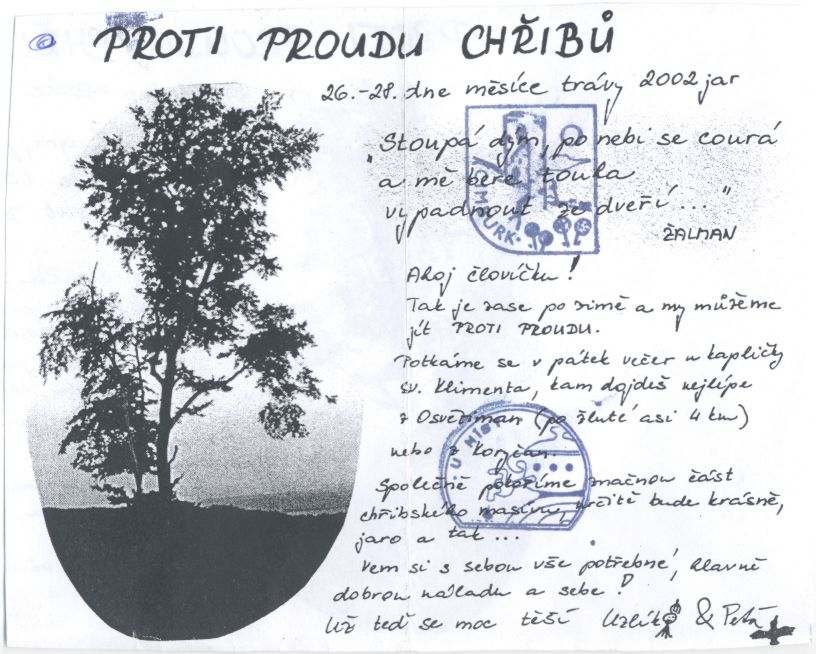 PROTI PROUDU CHŘIBŮ
26.-28. dne měsíce trávy 2002 jar
"Stoupá dým, po nebi se courá
a mě bere touha
vypadnout ze dveří..."
ŽALMAN
Ahoj človíčku!
Tak je zase po zimě a my můžeme
jít PROTI PROUDU.
Potkáme se v pátek večer u kapličky
sv. Klimenta, kam dojdeš nejlépe
z Osvětiman (po žluté asi 4 km)
nebo z Koryčan.
Společně pokoříme značnou část
chřibského masivu, určitě bude krásně,
jaro a tak...
Vem si s sebou vše potřebné, hlavně
dobrou náladu a sebe!
Už teď se moc těší Uzlík & Peťa